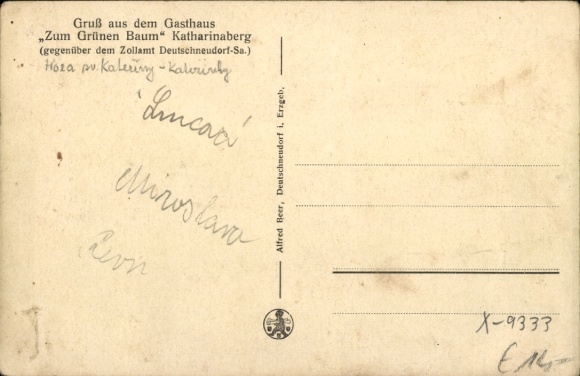 Gruß aus dem Gasthaus
„Zum Grünen Baum“ Katharinaberg
(gegenüber dem Zollamt Deutschneudorf-Sa.)
Hora sv. Kateřiny -
Miroslava
Alfred Beer, Deutschneudorf i. Erzgeb.
X-9333